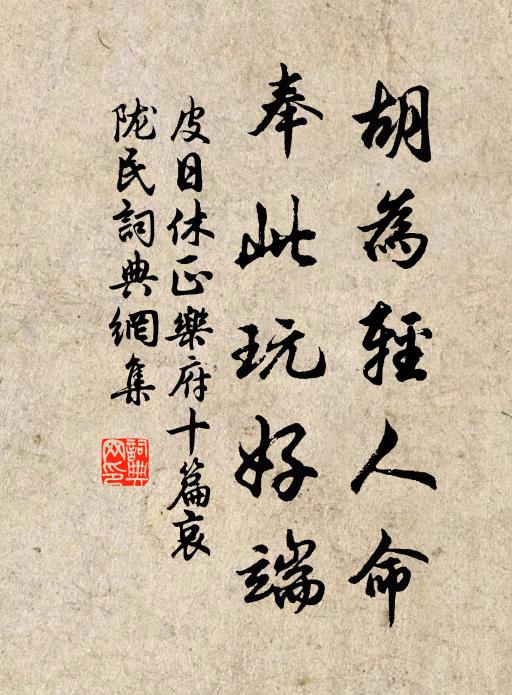 胡為輕人命
奉此玩好端
皮日休正樂府十篇哀
陇民詞典網集
詞典网印